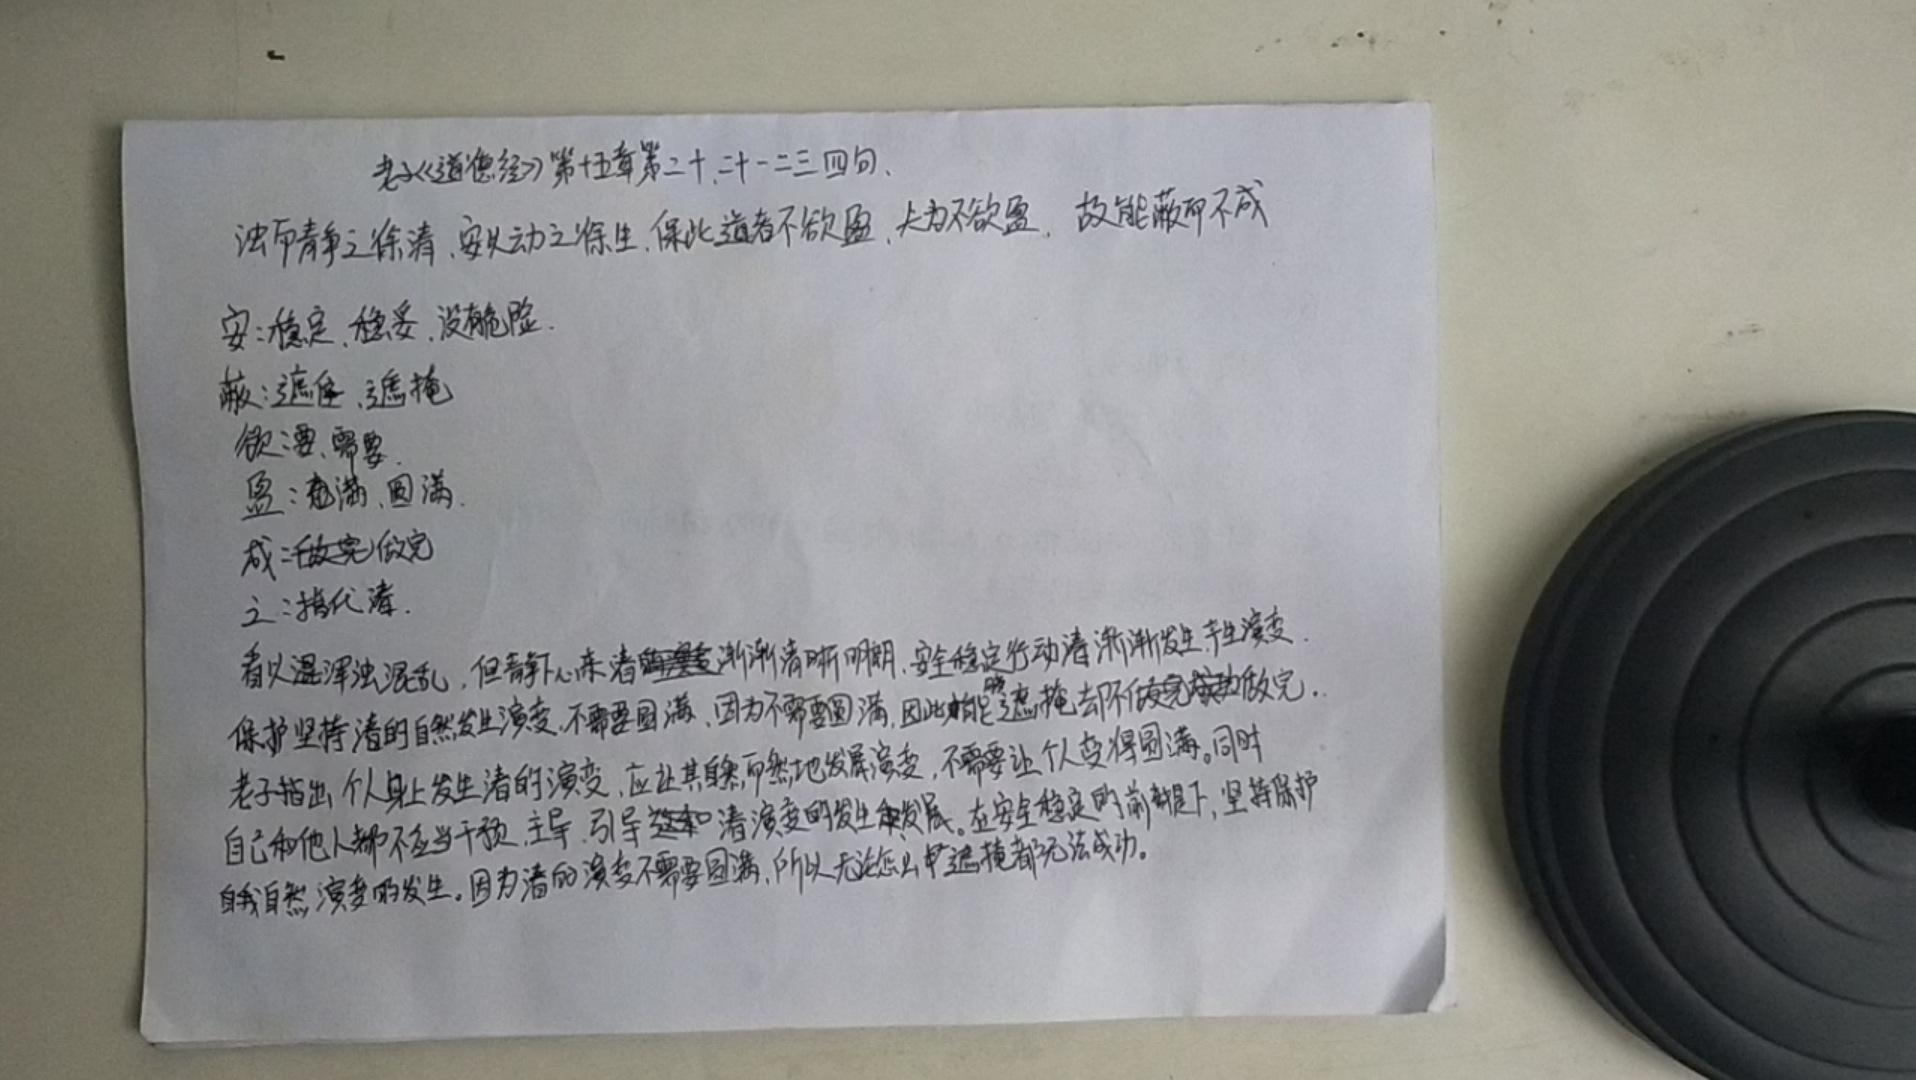 老子《道德经》第十五章第二十、二十一二三四句、
浊而静之徐清、安以动之徐生、保此道者不欲盈、夫为不欲盈、故能蔽而不成
安：稳定、稳妥、没有危险.
蔽：遮住、遮掩
欲：要、需要.
盈：充满、圆满.
成：做完
之：指代清.
看以混浑浊混乱，但静下心来清渐渐清晰明朗、安全稳定行动清渐渐发生产生演变.
保护坚持清的自然发生演变、不需要圆满、因为不需要圆满、因此能遮掩却不做完.
老子指出个人身上发生清的演变、应让其自然而然地发展演变，不需要让个人变得圆满。同时
自己和他人都不应当干预、主导、引导清演变的发生和发展。在安全稳定的前提下，坚持保护
自我自然演变的发生。因为清的演变不需要圆满、所以无论怎么遮掩都无法成功。